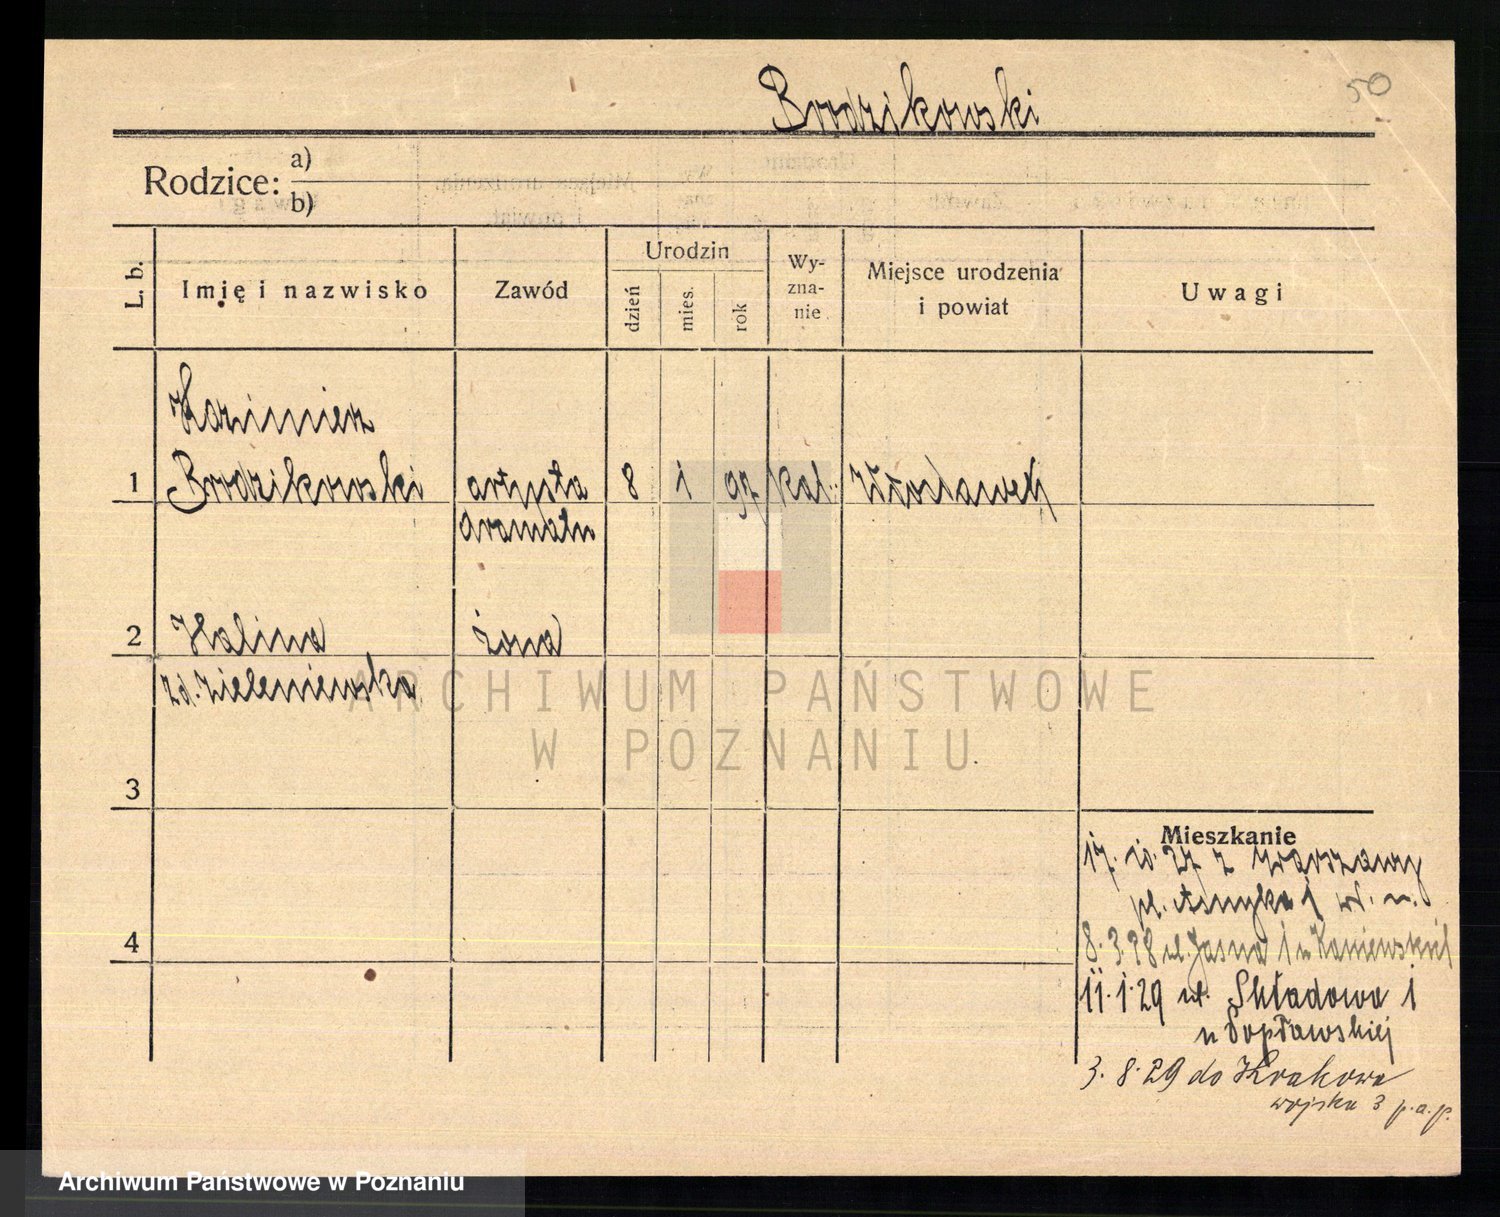 Brodzikowski
50
Rodzice: a)
b)
L. b.
Imię i nazwisko
Zawód
Urodzin
dzień
mies.
rok
Wy-
zna-
nie
Miejsce urodzenia
i powiat
Uwagi
Kazimierz
1 Brodzikowski artysta 8 1 97 kat. Włocławek
dramatu
2 Halina żona
zd. Zieleniewska
ARCHIWUM PAŃSTWOWE
W POZNANIU
3
Mieszkanie
17. 10. 27 z Warszawy
pl. Asnyka 1
4
8. 3. 28 ul. Jasna 1 u Kaniewskich
11. 1. 29 ul. Składowa 1
u Popławskiej
3. 8. 29 do Krakowa
wojska 3 p.a.p.
Archiwum Państwowe w Poznaniu